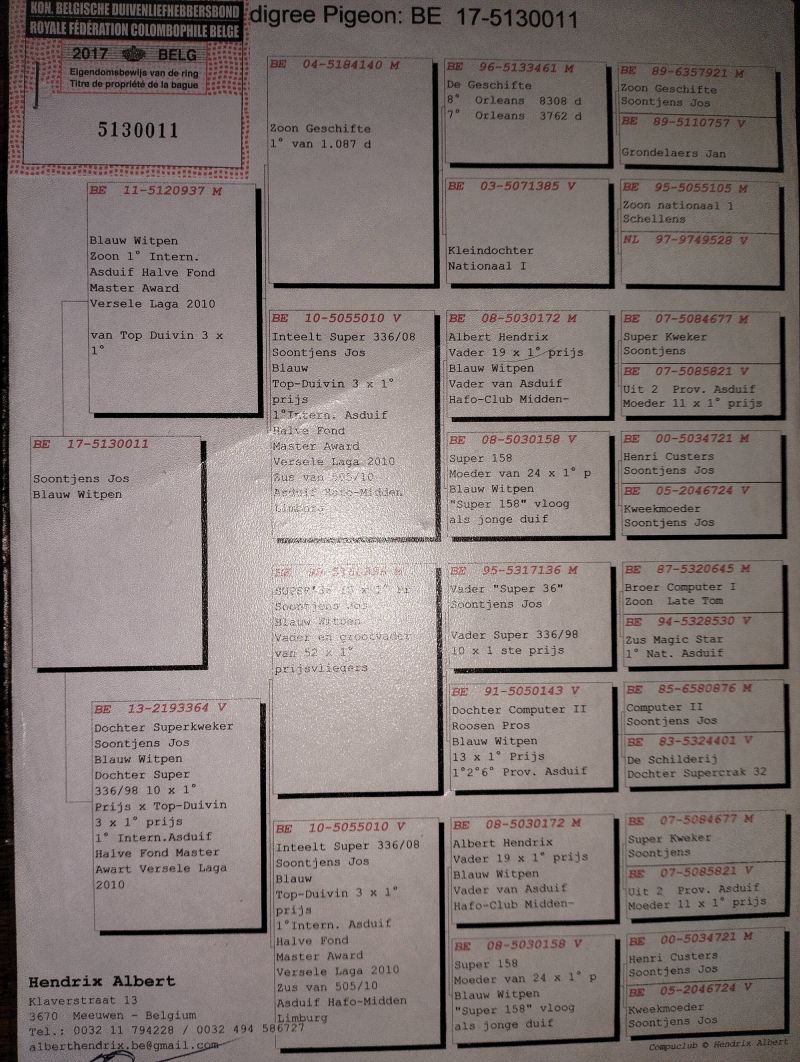 KON. BELGISCHE DUIVENLIEFHEBBERSBOND
ROYALE FÉDÉRATION COLOMBOPHILE BELGE
2017 BELG
Eigendomsbewijs van de ring
Titre de propriété de la bague
5130011
digree Pigeon: BE 17-5130011
BE 17-5130011
Soontjens Jos
Blauw Witpen
BE 11-5120937 M
Blauw Witpen
Zoon 1° Intern.
Asduif Halve Fond
Master Award
Versele Laga 2010
van Top Duivin 3 x
1°
BE 13-2193364 V
Dochter Superkweker
Soontjens Jos
Blauw Witpen
Dochter Super
336/98 10 x 1°
Prijs x Top-Duivin
3 x 1° prijs
1° Intern.Asduif
Halve Fond Master
Awart Versele Laga
2010
BE 04-5184140 M
Zoon Geschifte
1° van 1.087 d
BE 10-5055010 V
Inteelt Super 336/08
Soontjens Jos
Blauw
Top-Duivin 3 x 1°
prijs
1°Intern. Asduif
Halve Fond
Master Award
Versele Laga 2010
Zus van 505/10
Asduif Hafo-Midden
Limburg
BE M
10 x 1°
Soontjens Jos
Blauw Witpen
Vader en grootvader
van 52 x 1°
prijsvliegers
BE 10-5055010 V
Inteelt Super 336/08
Soontjens Jos
Blauw
Top-Duivin 3 x 1°
prijs
1°Intern. Asduif
Halve Fond
Master Award
Versele Laga 2010
Zus van 505/10
Asduif Hafo-Midden
Limburg
BE 96-5133461 M
De Geschifte
8° Orleans 8308 d
7° Orleans 3762 d
BE 03-5071385 V
Kleindochter
Nationaal I
BE 08-5030172 M
Albert Hendrix
Vader 19 x 1° prijs
Blauw Witpen
Vader van Asduif
Hafo-Club Midden-
BE 08-5030158 V
Super 158
Moeder van 24 x 1° p
Blauw Witpen
"Super 158" vloog
als jonge duif
BE 95-5317136 M
Vader "Super 36"
Soontjens Jos
Vader Super 336/98
10 x 1 ste prijs
BE 91-5050143 V
Dochter Computer II
Roosen Pros
Blauw Witpen
13 x 1° Prijs
1°2°6° Prov. Asduif
BE 08-5030172 M
Albert Hendrix
Vader 19 x 1° prijs
Blauw Witpen
Vader van Asduif
Hafo-Club Midden-
BE 08-5030158 V
Super 158
Moeder van 24 x 1° p
Blauw Witpen
"Super 158" vloog
als jonge duif
BE 89-6357921 M
Zoon Geschifte
Soontjens Jos
BE 89-5110757 V
Grondelaers Jan
BE 95-5055105 M
Zoon nationaal 1
Schellens
NL 97-9749528 V
BE 07-5084677 M
Super Kweker
Soontjens
BE 07-5085821 V
Uit 2 Prov. Asduif
Moeder 11 x 1° prijs
BE 00-5034721 M
Henri Custers
Soontjens Jos
BE 05-2046724 V
Kweekmoeder
Soontjens Jos
BE 87-5320645 M
Broer Computer I
Zoon Late Tom
BE 94-5328530 V
Zus Magic Star
1° Nat. Asduif
BE 85-6580876 M
Computer II
Soontjens Jos
BE 83-5324401 V
De Schilderij
Dochter Supercrak 32
BE 07-5084677 M
Super Kweker
Soontjens
BE 07-5085821 V
Uit 2 Prov. Asduif
Moeder 11 x 1° prijs
BE 00-5034721 M
Henri Custers
Soontjens Jos
BE 05-2046724 V
Kweekmoeder
Soontjens Jos
Hendrix Albert
Klaverstraat 13
3670 Meeuwen - Belgium
Tel.: 0032 11 794228 / 0032 494 586727
alberthendrix.be@gmail.com
Compuclub © Hendrix Albert